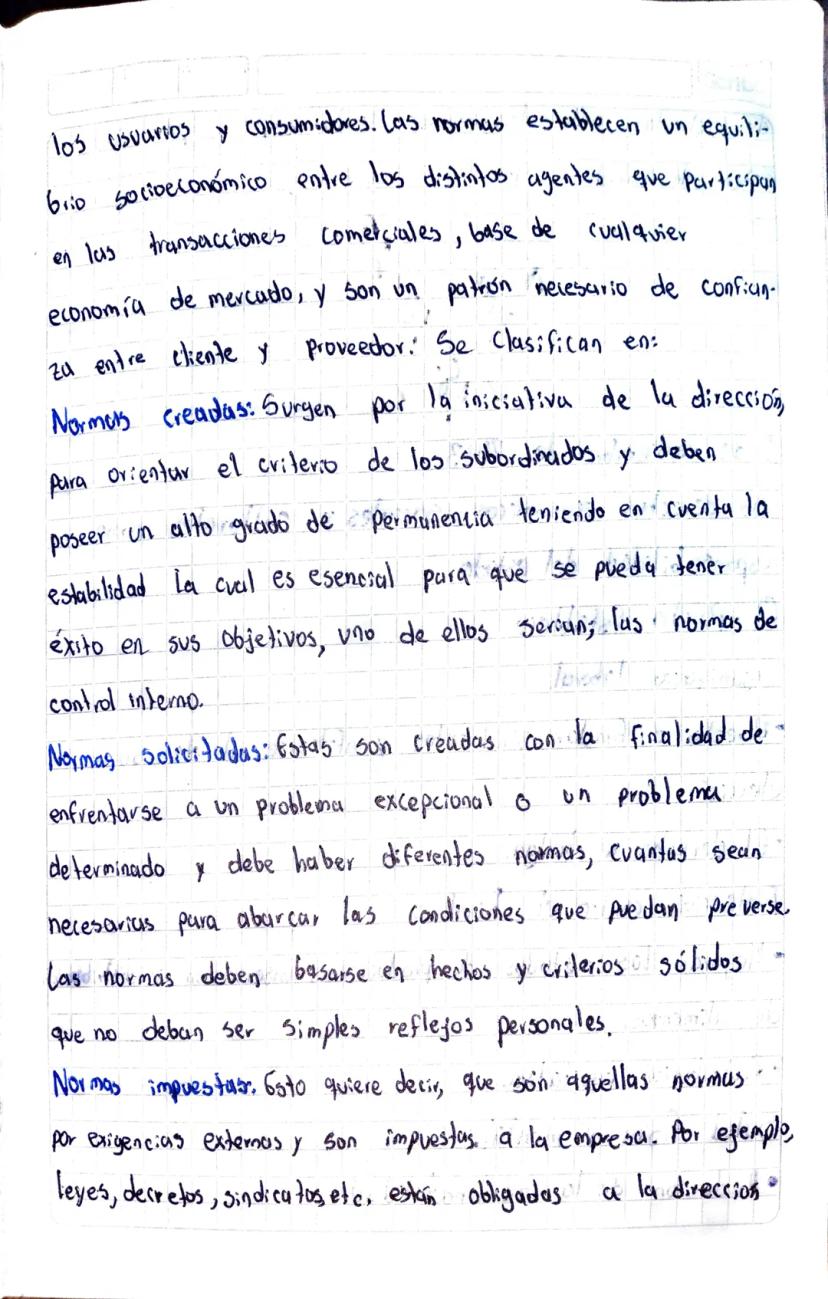 los usuarios y consumidores. Las normas establecen un equili-
brio socioeconómico entre los distintos agentes que participan
en las transacciones comerciales, base de cualquier
economía de mercado, y son un patrón necesario de confian-
za entre cliente y proveedor. Se clasifican en:
Normas creadas: Surgen por la iniciativa de la dirección,
para orientar el criterio de los subordinados y deben
poseer un alto grado de permanencia teniendo en cuenta la
estabilidad la cual es esencial para que se pueda tener
éxito en sus objetivos, uno de ellos serian; las normas de
control interno.
Normas solicitadas: Estas son creadas con la finalidad de
enfrentarse a un problema excepcional o un problema
determinado y debe haber diferentes normas, cuantas sean
necesarias para abarcar las condiciones que puedan preverse.
Las normas deben basarse en hechos y criterios sólidos
que no deban ser simples reflejos personales.
Normas impuestas: Esto quiere decir, que son aquellas normas
por exigencias externas y son impuestas a la empresa. Por ejemplo,
leyes, decretos, sindicatos, etc, están obligadas a la direccion